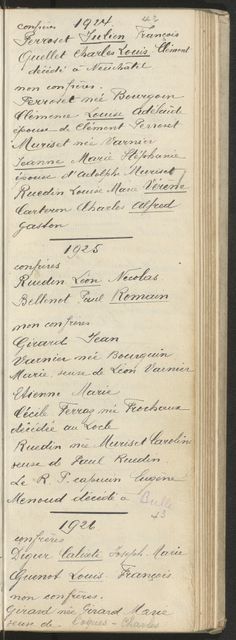 1924 43
confrères
Perroset Julien François
Quellet Charles Louis Clément
décédé à Neuchâtel
non confrères.
Perroset née Bourgoin
Clémence Louise Adélaïde
épouse de Clément Perroset
Muriset née Varnier
Jeanne Marie Stéphanie
épouse d'Adolph Muriset
Ruedin Louise Marie Vérène
Carteron Charles Alfred
Gaston
1925
confrères
Ruedin Léon Nicolas
Bellenot Paul Romain
non confrères
Girard Jean
Varnier née Bourquin
Marie, veuve de Léon Varnier
Etienne Marie
Cécile Ferray née Frochaux
décédée au Locle
Ruedin née Muriset Caroline
veuve de Paul Ruedin
Le R. P. capucin Eugène
Menoud décédé à Bulle
1926
confrères
Digier Calixte Joseph-Marie
Guinot Louis François
non confrères.
Girard née Girard Marie
veuve de Charles